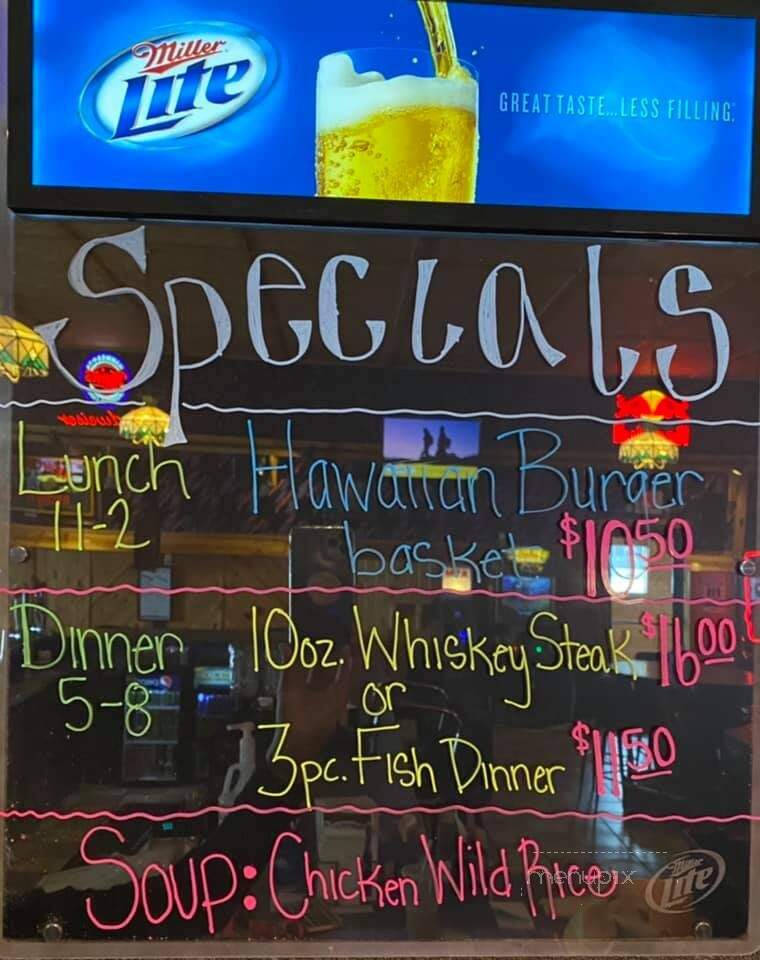 Miller
Lite
GREAT TASTE...LESS FILLING.
Specials
Lunch Hawaiian Burger
11-2 basket $10.50
Dinner 10oz. Whiskey Steak $16.00
5-8 or
3pc. Fish Dinner $11.50
Soup: Chicken Wild Rice
menupix
Miller
Lite